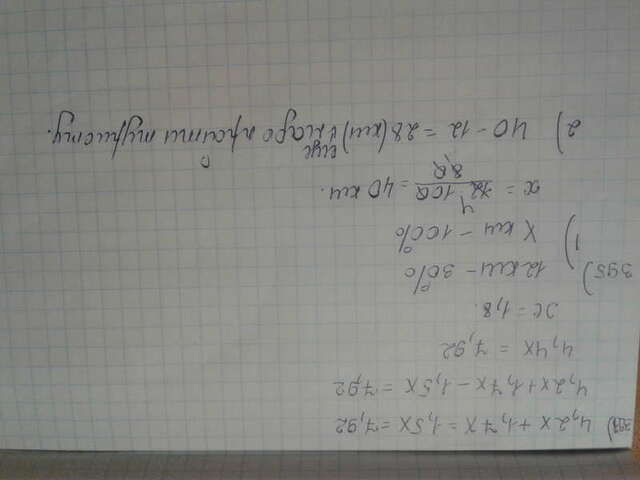 393) 4,2x+1,7x=1,5x=7,92
4,2x+1,7x-1,5x=7,92
4,4x = 7,92
x=1,8.
395) 12км-30%
1) x км-100%
x = 12 4 100 / 30 = 40 км.
2) 40-12=28(км) еще надо пройти туристу.